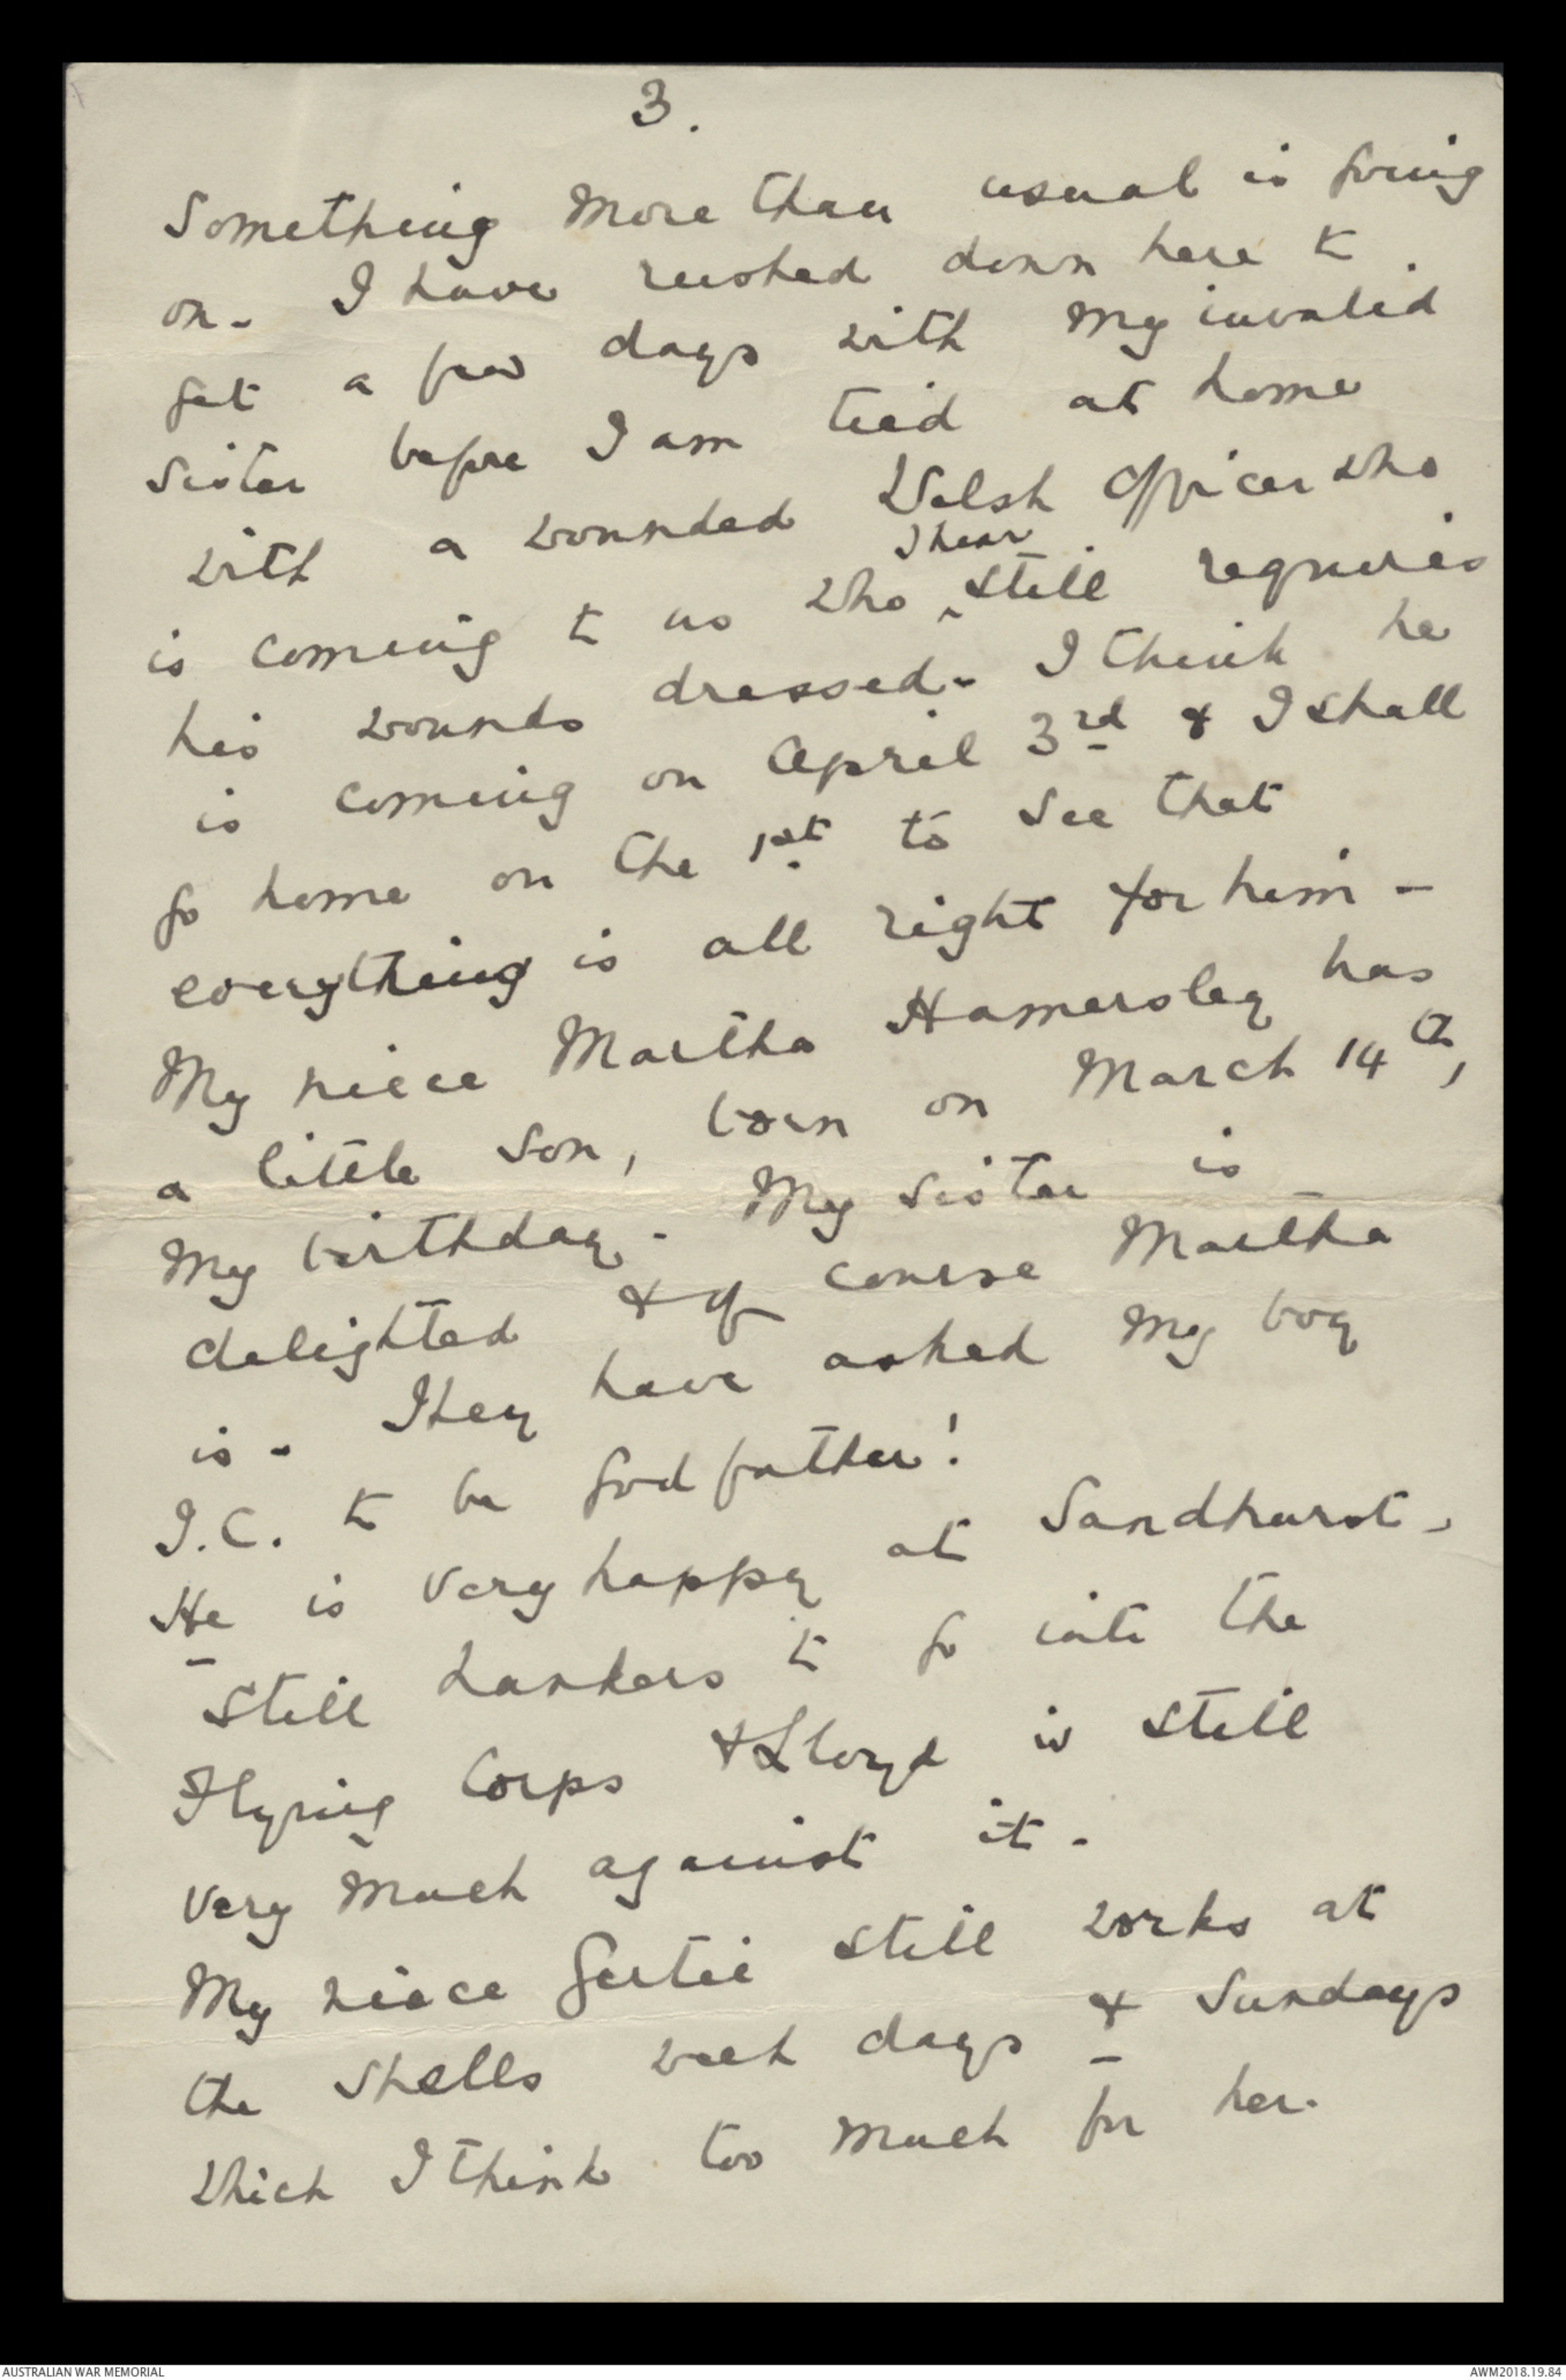 3.
Something more than usual is going
on - I have rushed down here to
get a few days with my invalid
sister before I am tied at home
with a wounded Welsh Officer who
is coming to us who ^I hear still requires
his wounds dressed - I think he
is coming on April 3rd & I shall
go home on the 1st to see that
everything is all right for him -
My niece Martha Hamersley has
a little son, born on March 14th,
my birthday - My sister is
delighted & of course Martha
is - They have asked my boy
I.C. to be godfather!
He is very happy at Sandhurst -
still hankers to go into the
Flying Corps & Lloyd is still
very much against it -
My niece Gertie still works at
the shells week days & Sundays
which I think too much for her.
AUSTRALIAN WAR MEMORIAL
AWM2018.19.84